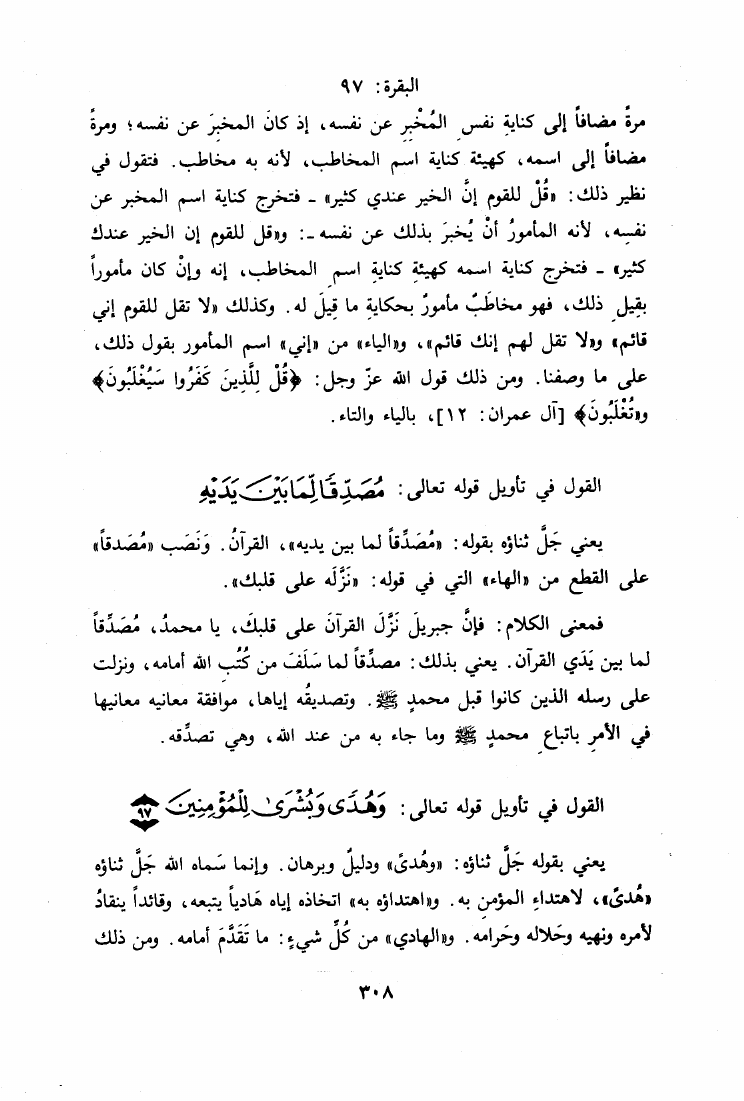 البقرة: ٩٧
مرةً مضافاً إلى كنايةِ نفسِ المُخْبِرِ عن نفسه، إذ كانَ المخبِرَ عن نفسه؛ ومرةً
مضافاً إلى اسمه، كهيئة كناية اسم المخاطب، لأنه به مخاطب. فتقول في
نظير ذلك: «قُلْ للقوم إنَّ الخير عندي كثير» ـ فتخرج كناية اسم المخبر عن
نفسِه، لأنه المأمورُ أنْ يُخبرَ بذلك عن نفسه ـ: و«قل للقوم إن الخير عندك
كثير» ـ فتخرج كناية اسمه كهيئةِ كنايةِ اسمِ المخاطب، إنه وإنْ كان مأموراً
بقيلِ ذلك، فهو مخاطَبٌ مأمورٌ بحكايةِ ما قِيلَ له. وكذلك «لا تقل للقوم إني
قائم» و«لا تقل لهم إنك قائم»، و«الياء» من «إني» اسم المأمور بقول ذلك،
على ما وصفنا. ومن ذلك قول الله عزّ وجل: ﴿قُلْ لِلَّذِينَ كَفَرُوا سَيُغْلَبُونَ﴾
و«تُغْلَبُونَ﴾ [آل عمران: ١٢]، بالياء والتاء.
القول في تأويل قوله تعالى: مُصَدِّقًا لِّمَا بَيْنَ يَدَيْهِ
يعني جَلَّ ثناؤه بقوله: «مُصَدِّقاً لما بين يديه»، القرآنُ. وَنَصَب «مُصَدقاً»
على القطع من «الهاء» التي في قوله: «نَزَّلَه على قلبك».
فمعنى الكلام: فإنَّ جبريلَ نَزَّلَ القرآنَ على قلبكَ، يا محمدُ، مُصَدِّقاً
لما بين يَدَي القرآن. يعني بذلك: مصدِّقاً لما سَلَفَ من كُتُبِ الله أمامه، ونزلت
على رسله الذين كانوا قبل محمدٍ ﷺ. وتصديقُه إياها، موافقة معانيه معانيها
في الأمرِ باتباعِ محمدٍ ﷺ وما جاء به من عند الله، وهي تصدِّقه.
القول في تأويل قوله تعالى: وَهُدًى وَبُشْرَىٰ لِلْمُؤْمِنِينَ ٩٧
يعني بقوله جَلَّ ثناؤه: «وهُدىً» ودليلٌ وبرهان. وإنما سَماه الله جَلَّ ثناؤه
«هُدىً»، لاهتداءِ المؤمنِ به. و«اهتداؤه به» اتخاذه إياه هَادياً يتبعه، وقائداً ينقادُ
لأمره ونهيه وحَلاله وحَرامه. و«الهادي» من كُلِّ شيءٍ: ما تَقَدَّمَ أمامه. ومن ذلك
٣٠٨